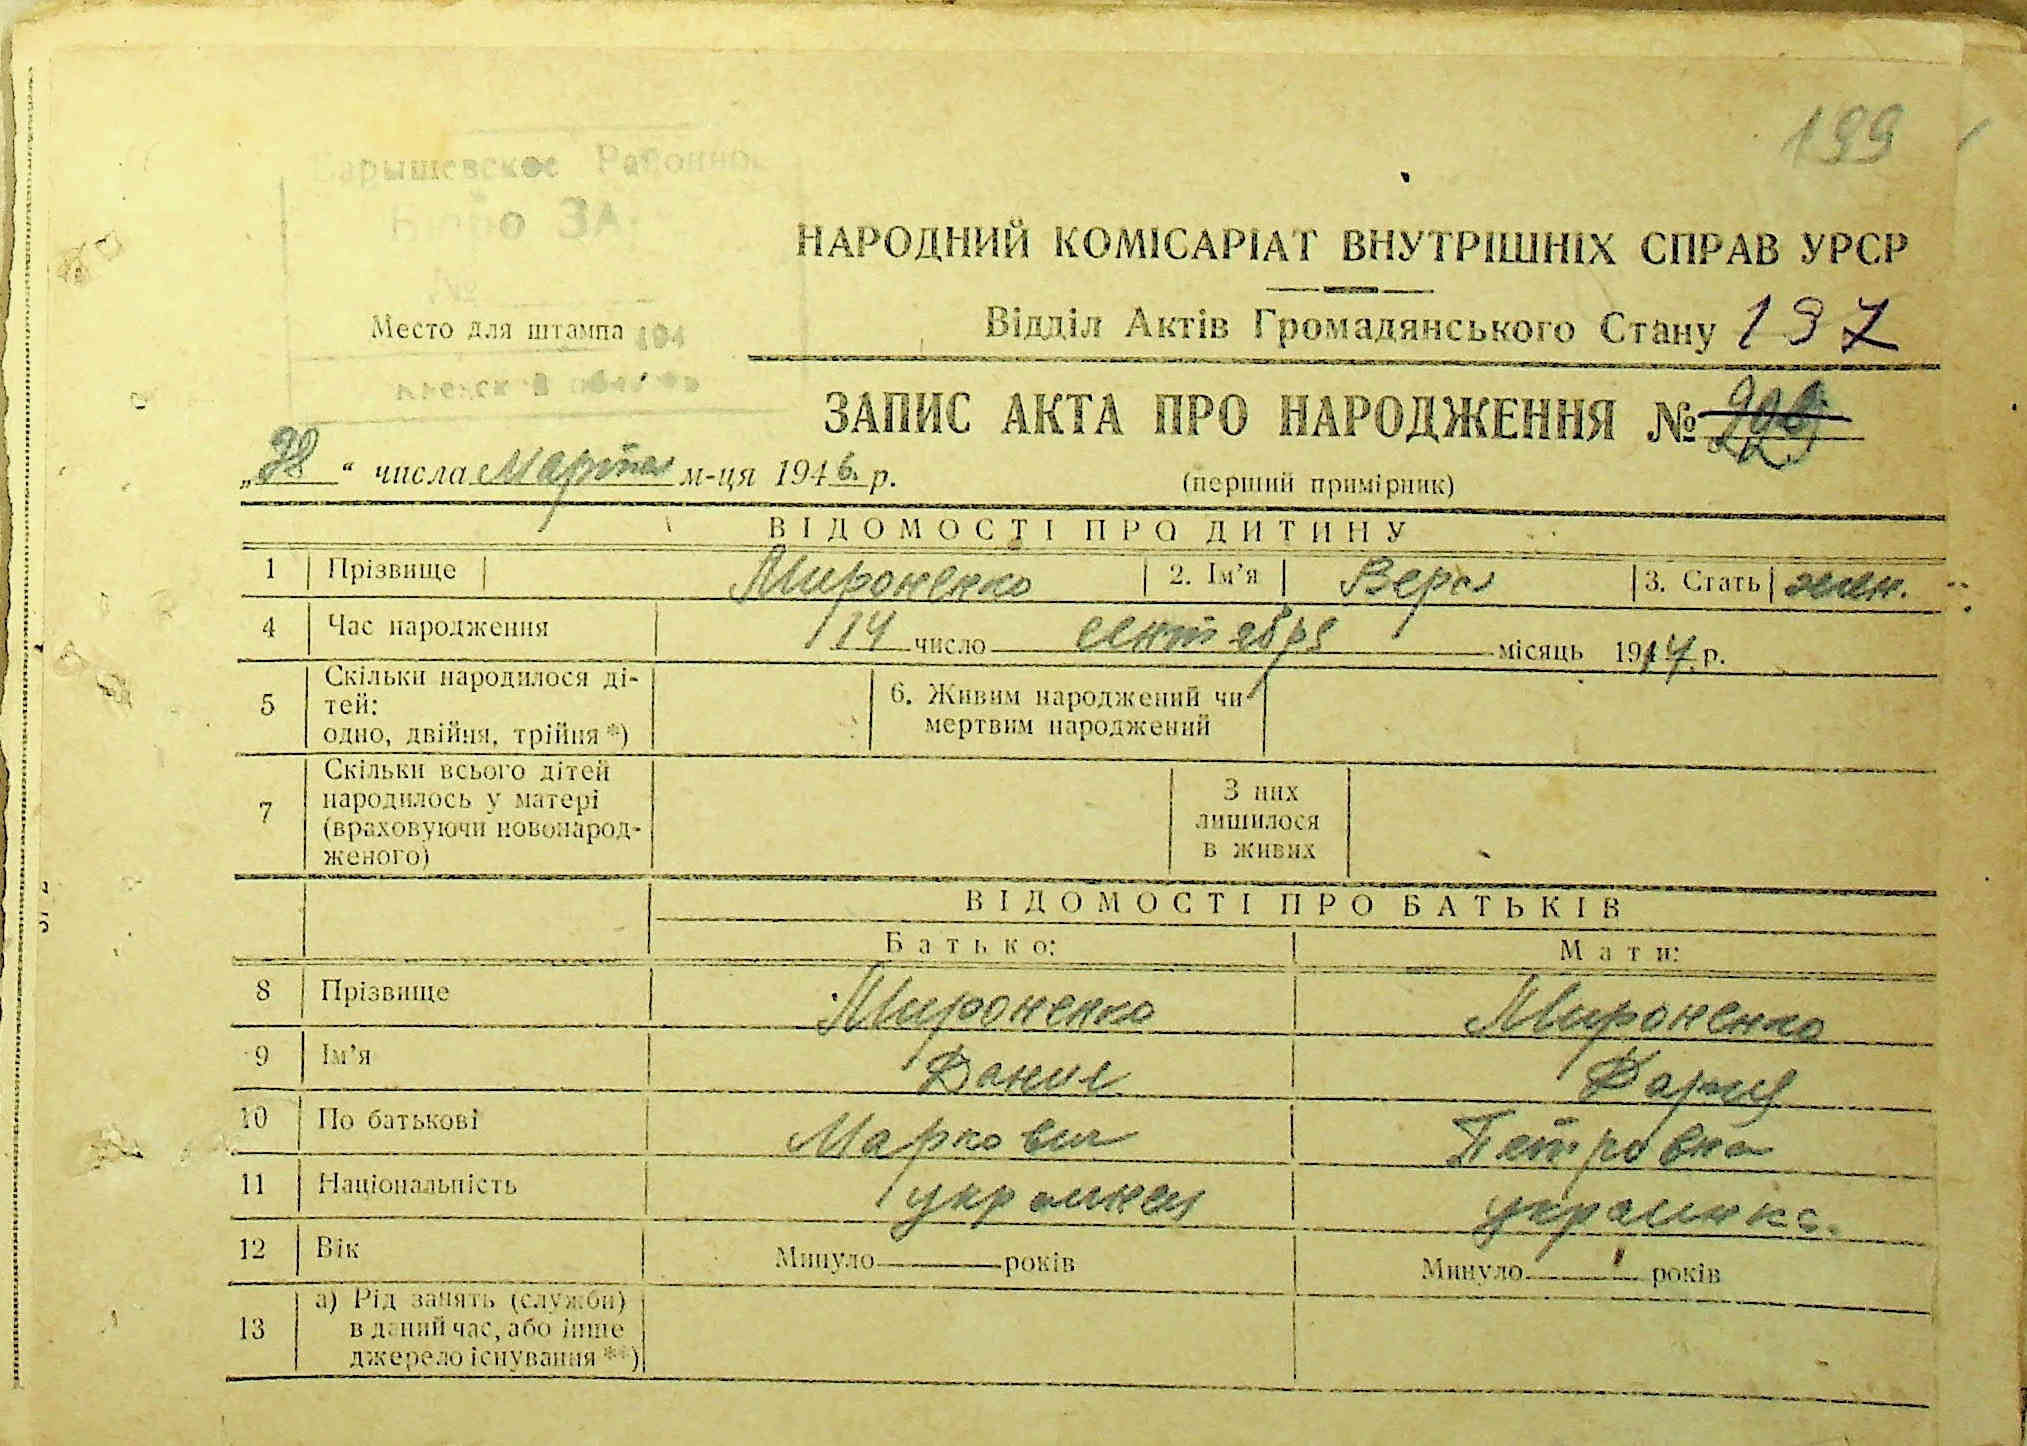 199
Барышевское Районное
Бюро ЗА
№
Место для штампа 194
НАРОДНИЙ КОМІСАРІАТ ВНУТРІШНІХ СПРАВ УРСР
Відділ Актів Громадянського Стану 197
ЗАПИС АКТА ПРО НАРОДЖЕННЯ №
„28“ числа Марта м-ця 1946. р. (перший примірник)
ВІДОМОСТІ ПРО ДИТИНУ
1 Прізвище Мироненко 2. Ім’я Вера 3. Стать жен.
4 Час народження 14 число сентября місяць 1917. р.
5 Скільки народилося ді-
тей:
одно, двійня, трійня *)
6. Живим народжений чи
мертвим народжений
7 Скільки всього дітей
народилось у матері
(враховуючи новонарод-
женого)
З них
лишилося
в живих
ВІДОМОСТІ ПРО БАТЬКІВ
Батько: Мати:
8 Прізвище Мироненко Мироненко
9 Ім’я Данил Дария
10 По батькові Маркович Петровна
11 Національність украинец украинка.
12 Вік Минуло років Минуло років
13 а) Рід занять (служби)
в даний час, або інше
джерело існування **)